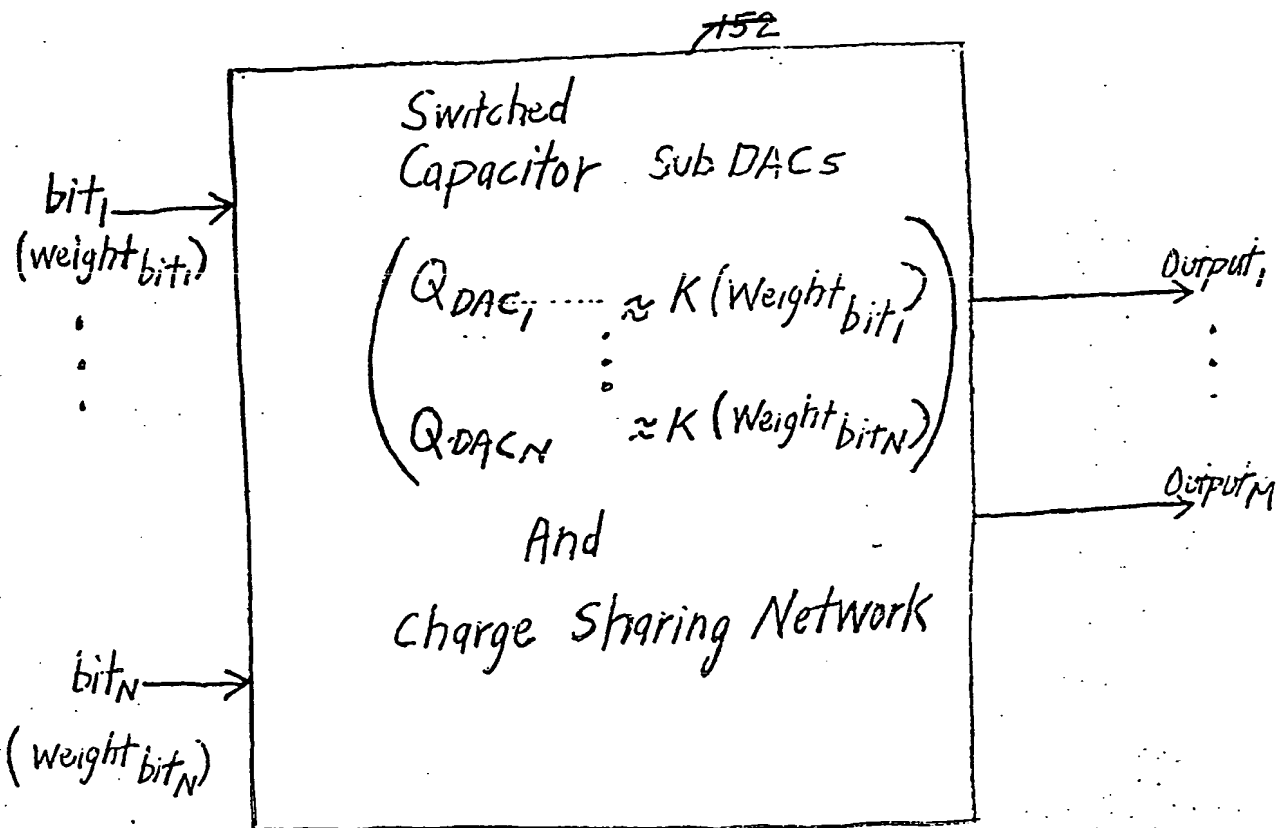 152
Switched
Capacitor Sub DACs
bit1
(weight bit1)
QDAC1 ...... ≈ K (Weight bit1)
QDACN ≈ K (Weight bitN)
Output1
OutputM
And
Charge Sharing Network
bitN
(weight bitN)